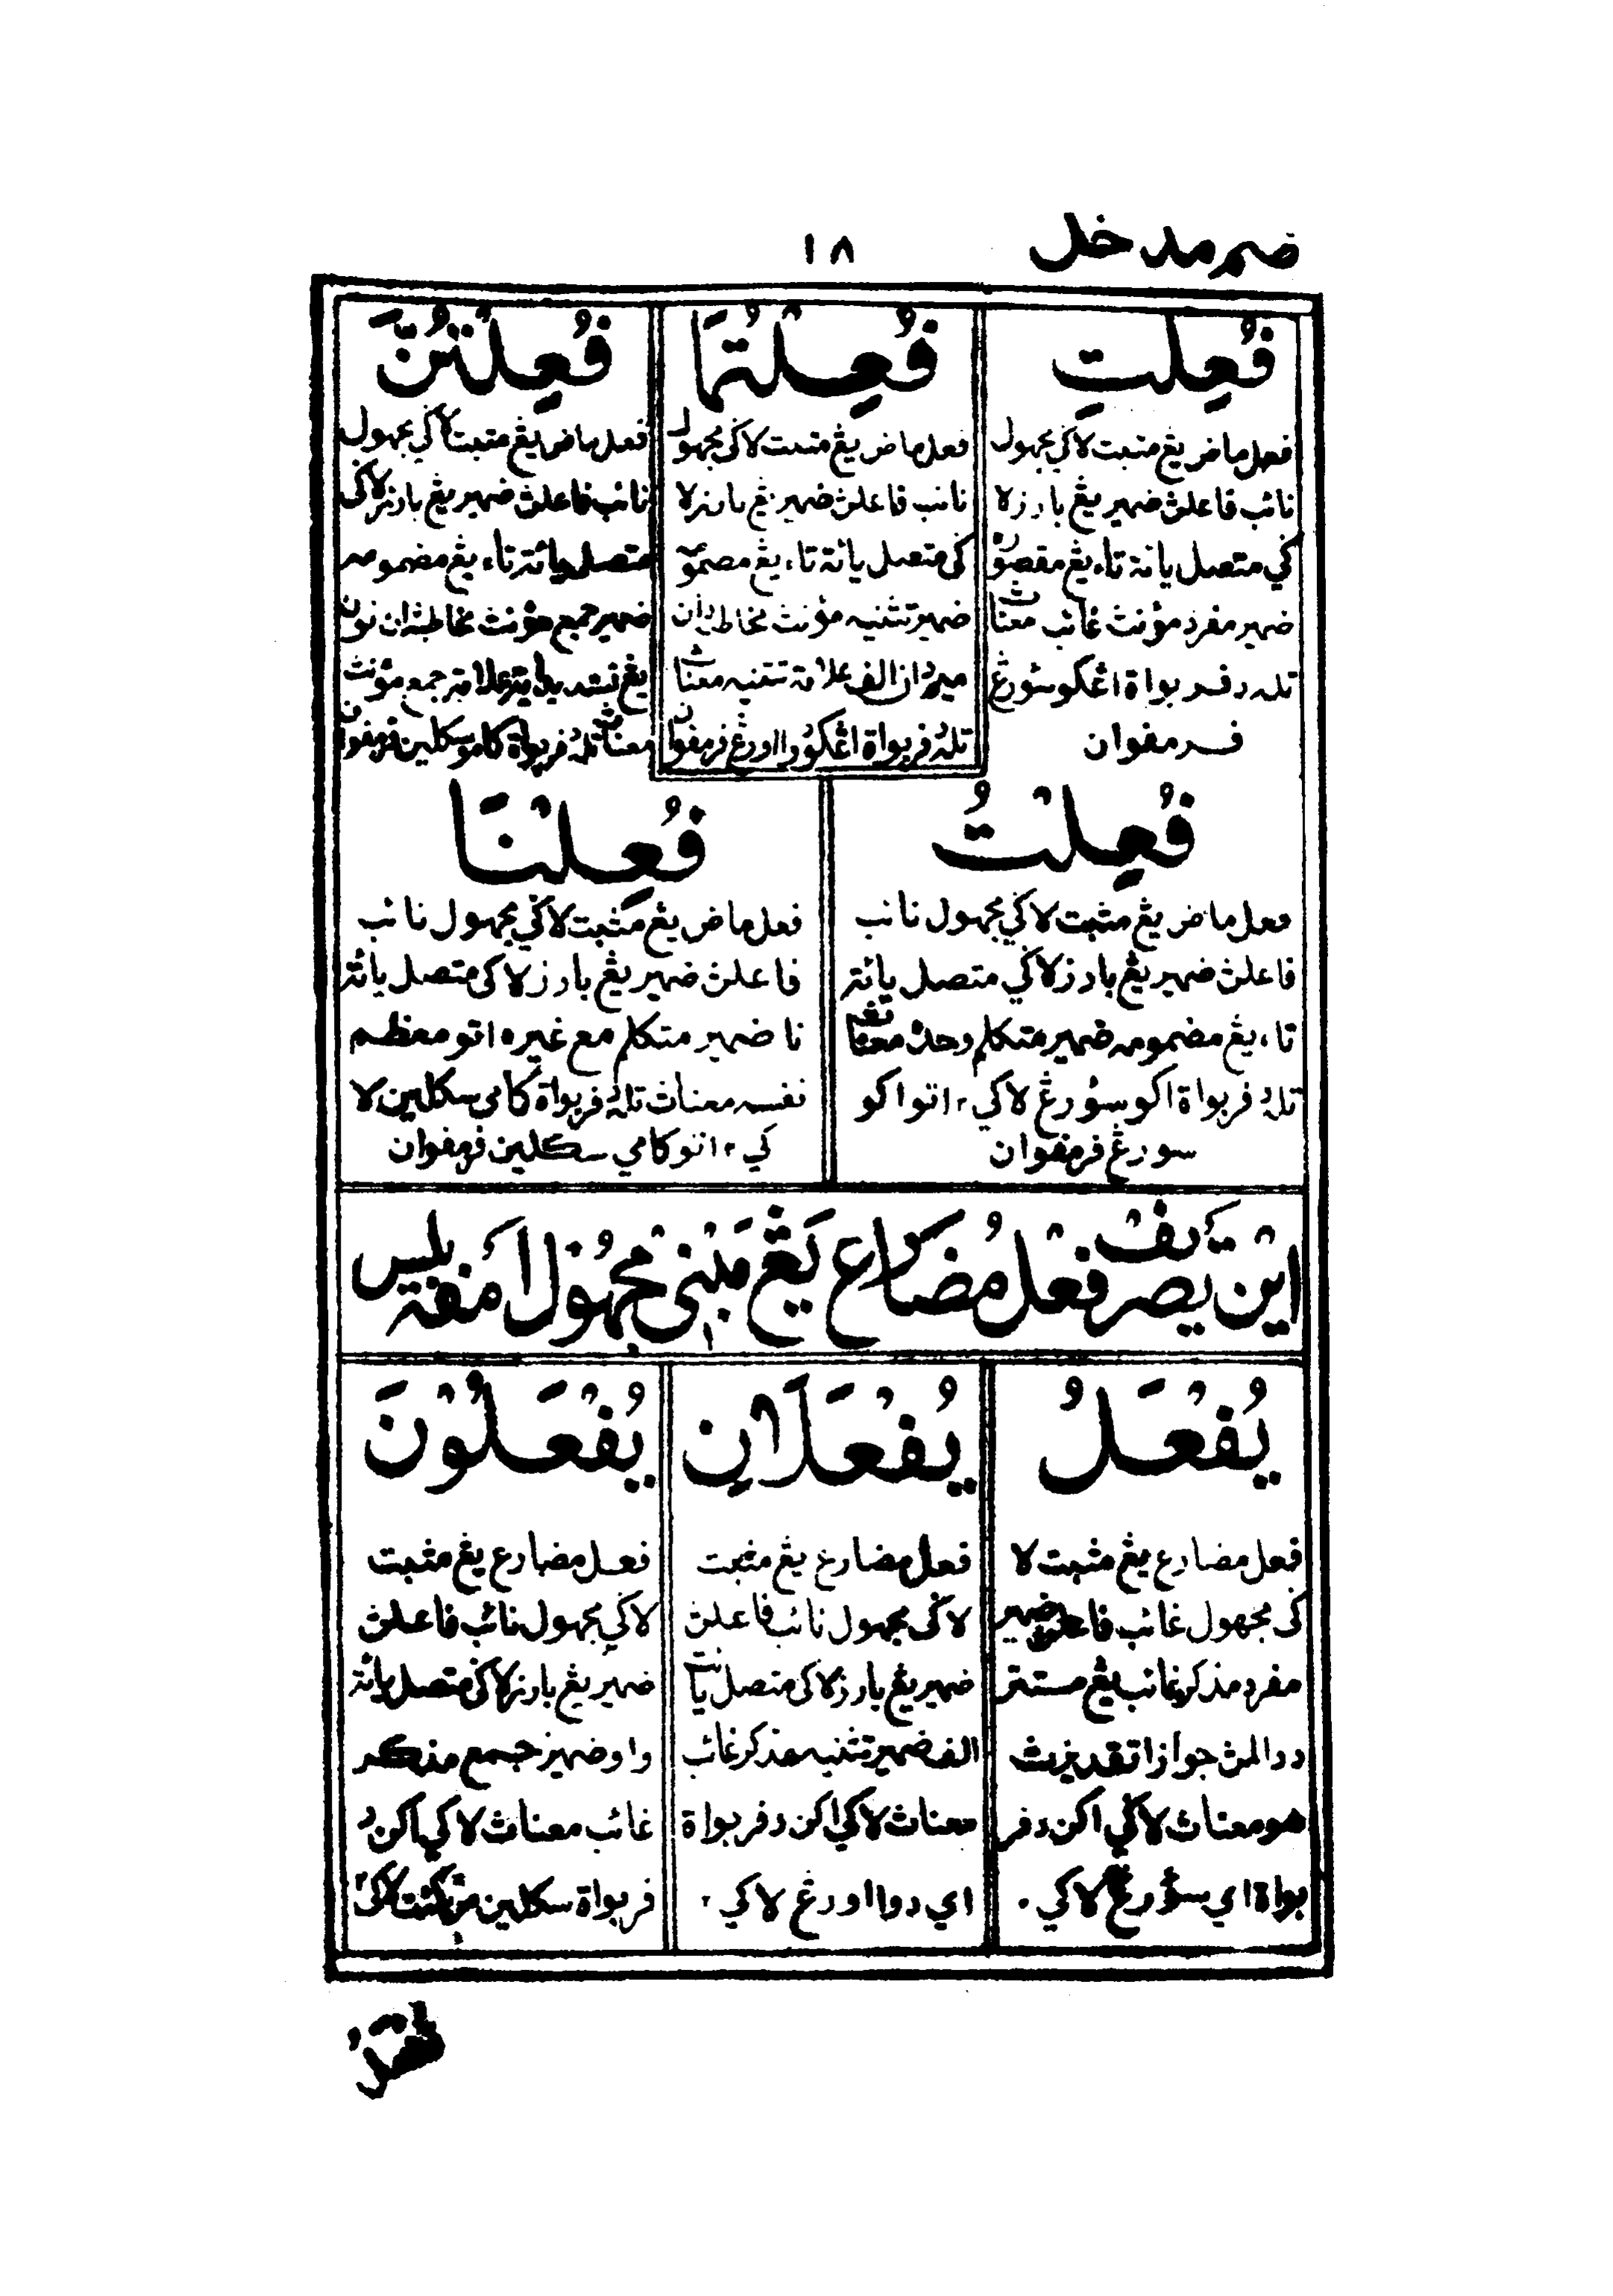 ضم مدخل
١٨
فُعِلْتِ
فعل ماض يڠ مثبت لاكي مجهول
نائب فاعلڽ ضمير يڠ بارز لا
كي متصل يائة تاء يڠ مقصور
ضمير مفرد مؤنث غائب معناڽ
تله دفربواة اڠكو سؤرڠ
فرمفوان
فُعِلْتُمَا
فعل ماض يڠ مثبت لاكي مجهول
نائب فاعلڽ ضمير يڠ بارز لا
كي متصل يائة تاء يڠ مضمومه
ضمير تثنيه مؤنث مخاطبه دان
ميم دان الف علامة تثنيه معناڽ
تله دفربواة اڠكو دوا اورڠ فرمفوان
فُعِلْتُنَّ
فعل ماض يڠ مثبت لاكي مجهول
نائب فاعلڽ ضمير يڠ بارز لاكي
متصل يائة تاء يڠ مضمومه
ضمير جمع مؤنث مخاطبة دان نون
يڠ تشديد ايت علامة جمع مؤنث
معناڽ تله دفربواة كامو سكلين فرمفوان
فُعِلْتُ
فعل ماض يڠ مثبت لاكي مجهول نائب
فاعلڽ ضمير يڠ بارز لاكي متصل يائة
تاء يڠ مضمومه ضمير متكلم وحده معناڽ
تله دفربواة اكو سؤرڠ لاكي٢ اتو اكو
سورڠ فرمفوان
فُعِلْنَا
فعل ماض يڠ مثبت لاكي مجهول نائب
فاعلڽ ضمير يڠ بارز لاكي متصل يائة
نا ضمير متكلم مع غيره اتو معظم
نفسه معناڽ تله دفربواة كامي سكلين لا
كي٢ اتو كامي سكلين فرمفوان
اين تصريف فعل مضارع يڠ مبني مجهول امفة بلس
يُفْعَلُ
فعل مضارع يڠ مثبت لا
كي مجهول غائب فاعلڽ ضمير
مفرد مذكر غائب يڠ مستتر
ددالمڽ جوازا تقديرڽ
هو معناڽ لاكي اكن دفر
بواة اي سؤرڠ لاكي٢
يُفْعَلَانِ
فعل مضارع يڠ مثبت
لاكي مجهول نائب فاعلڽ
ضمير يڠ بارز لاكي متصل يائة
الف ضمير تثنيه مذكر غائب
معناڽ لاكي اكن دفربواة
اي دوا اورڠ لاكي٢
يُفْعَلُوْنَ
فعل مضارع يڠ مثبت
لاكي مجهول نائب فاعلڽ
ضمير يڠ بارز لاكي متصل يائة
واو ضمير جمع مذكر
غائب معناڽ لاكي اكن د
فربواة سكلين لاكي٢